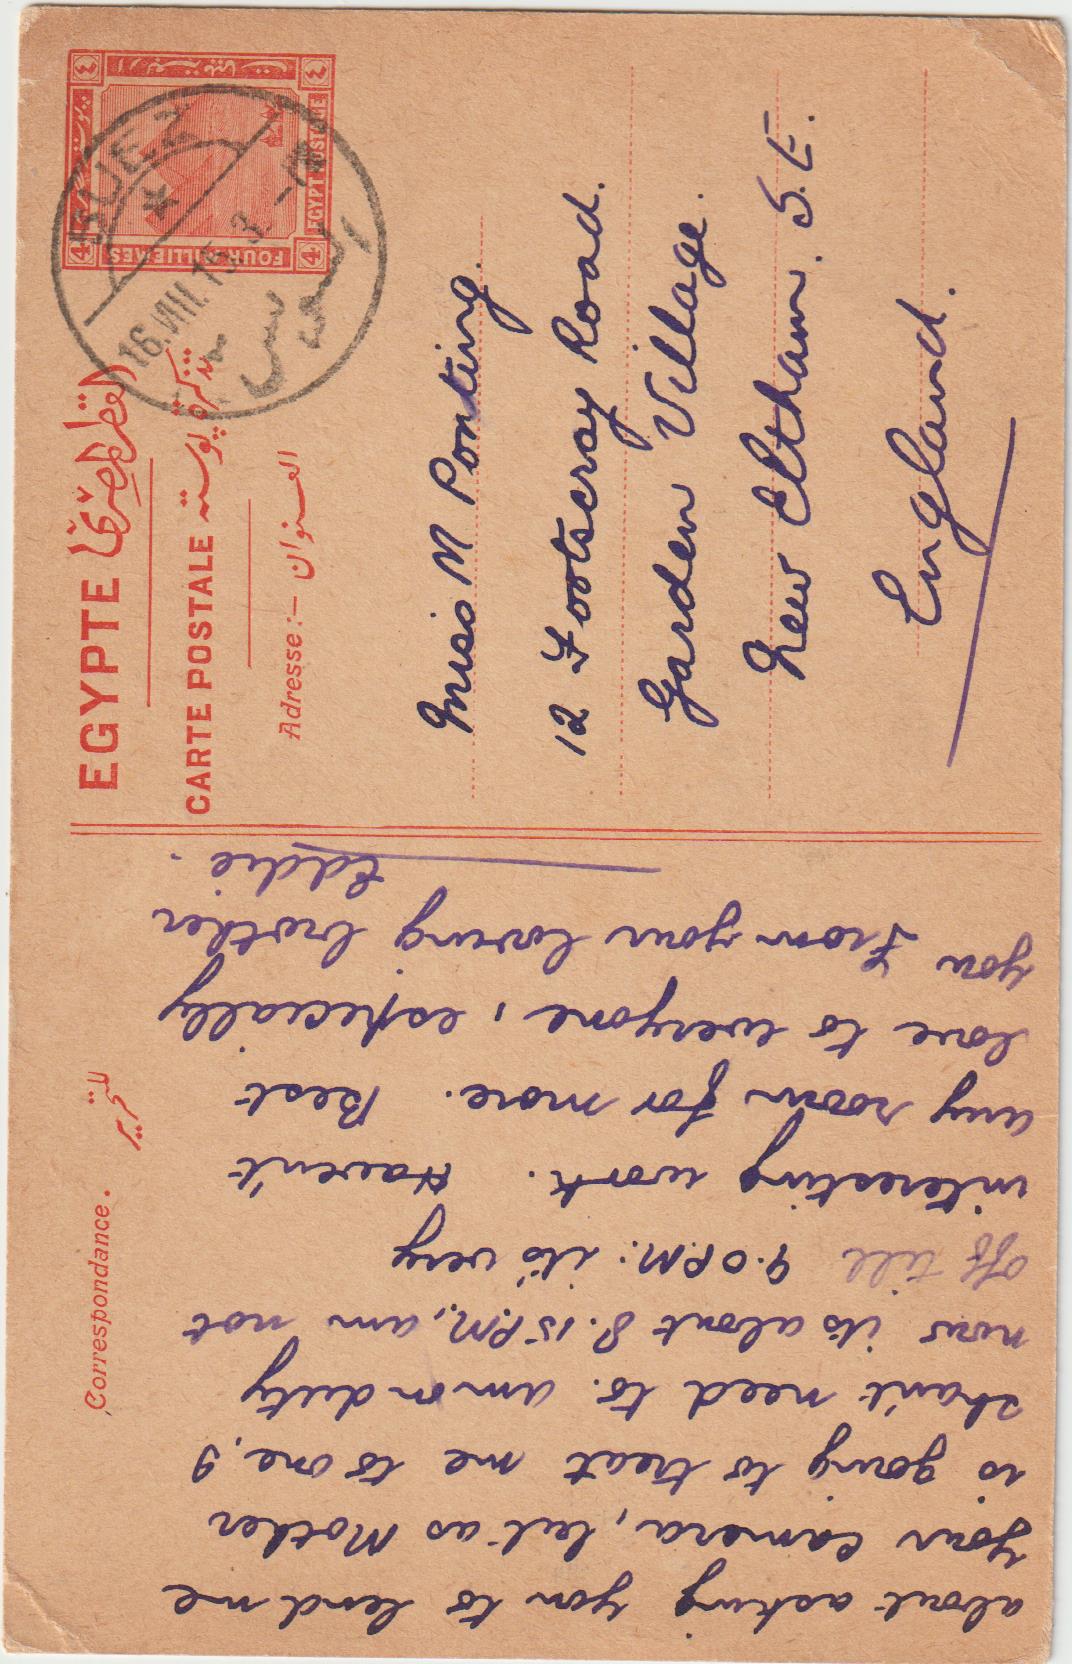 EGYPTE القطر المصرى
CARTE POSTALE تذكرة بوستة
Adresse:— العنوان
٤ ٤
4 FOUR MILLIEMES 4
EGYPT POSTAGE
SUEZ
16.VIII.15. 3 -
السويس
Miss M Ponting.
12 Footscray Road.
Garden Village.
New Eltham. S.E.
England.
Correspondance.
about asking you to lend me
your camera, but as Mother
is going to treat me to one, I
shan't need to. am on duty
now its about 8.15 P.M, am not
off till 9.0 P.M: its very
interesting work. Haven't
any room for more. Best
love to everyone, especially
you From your loving brother
Eddie.